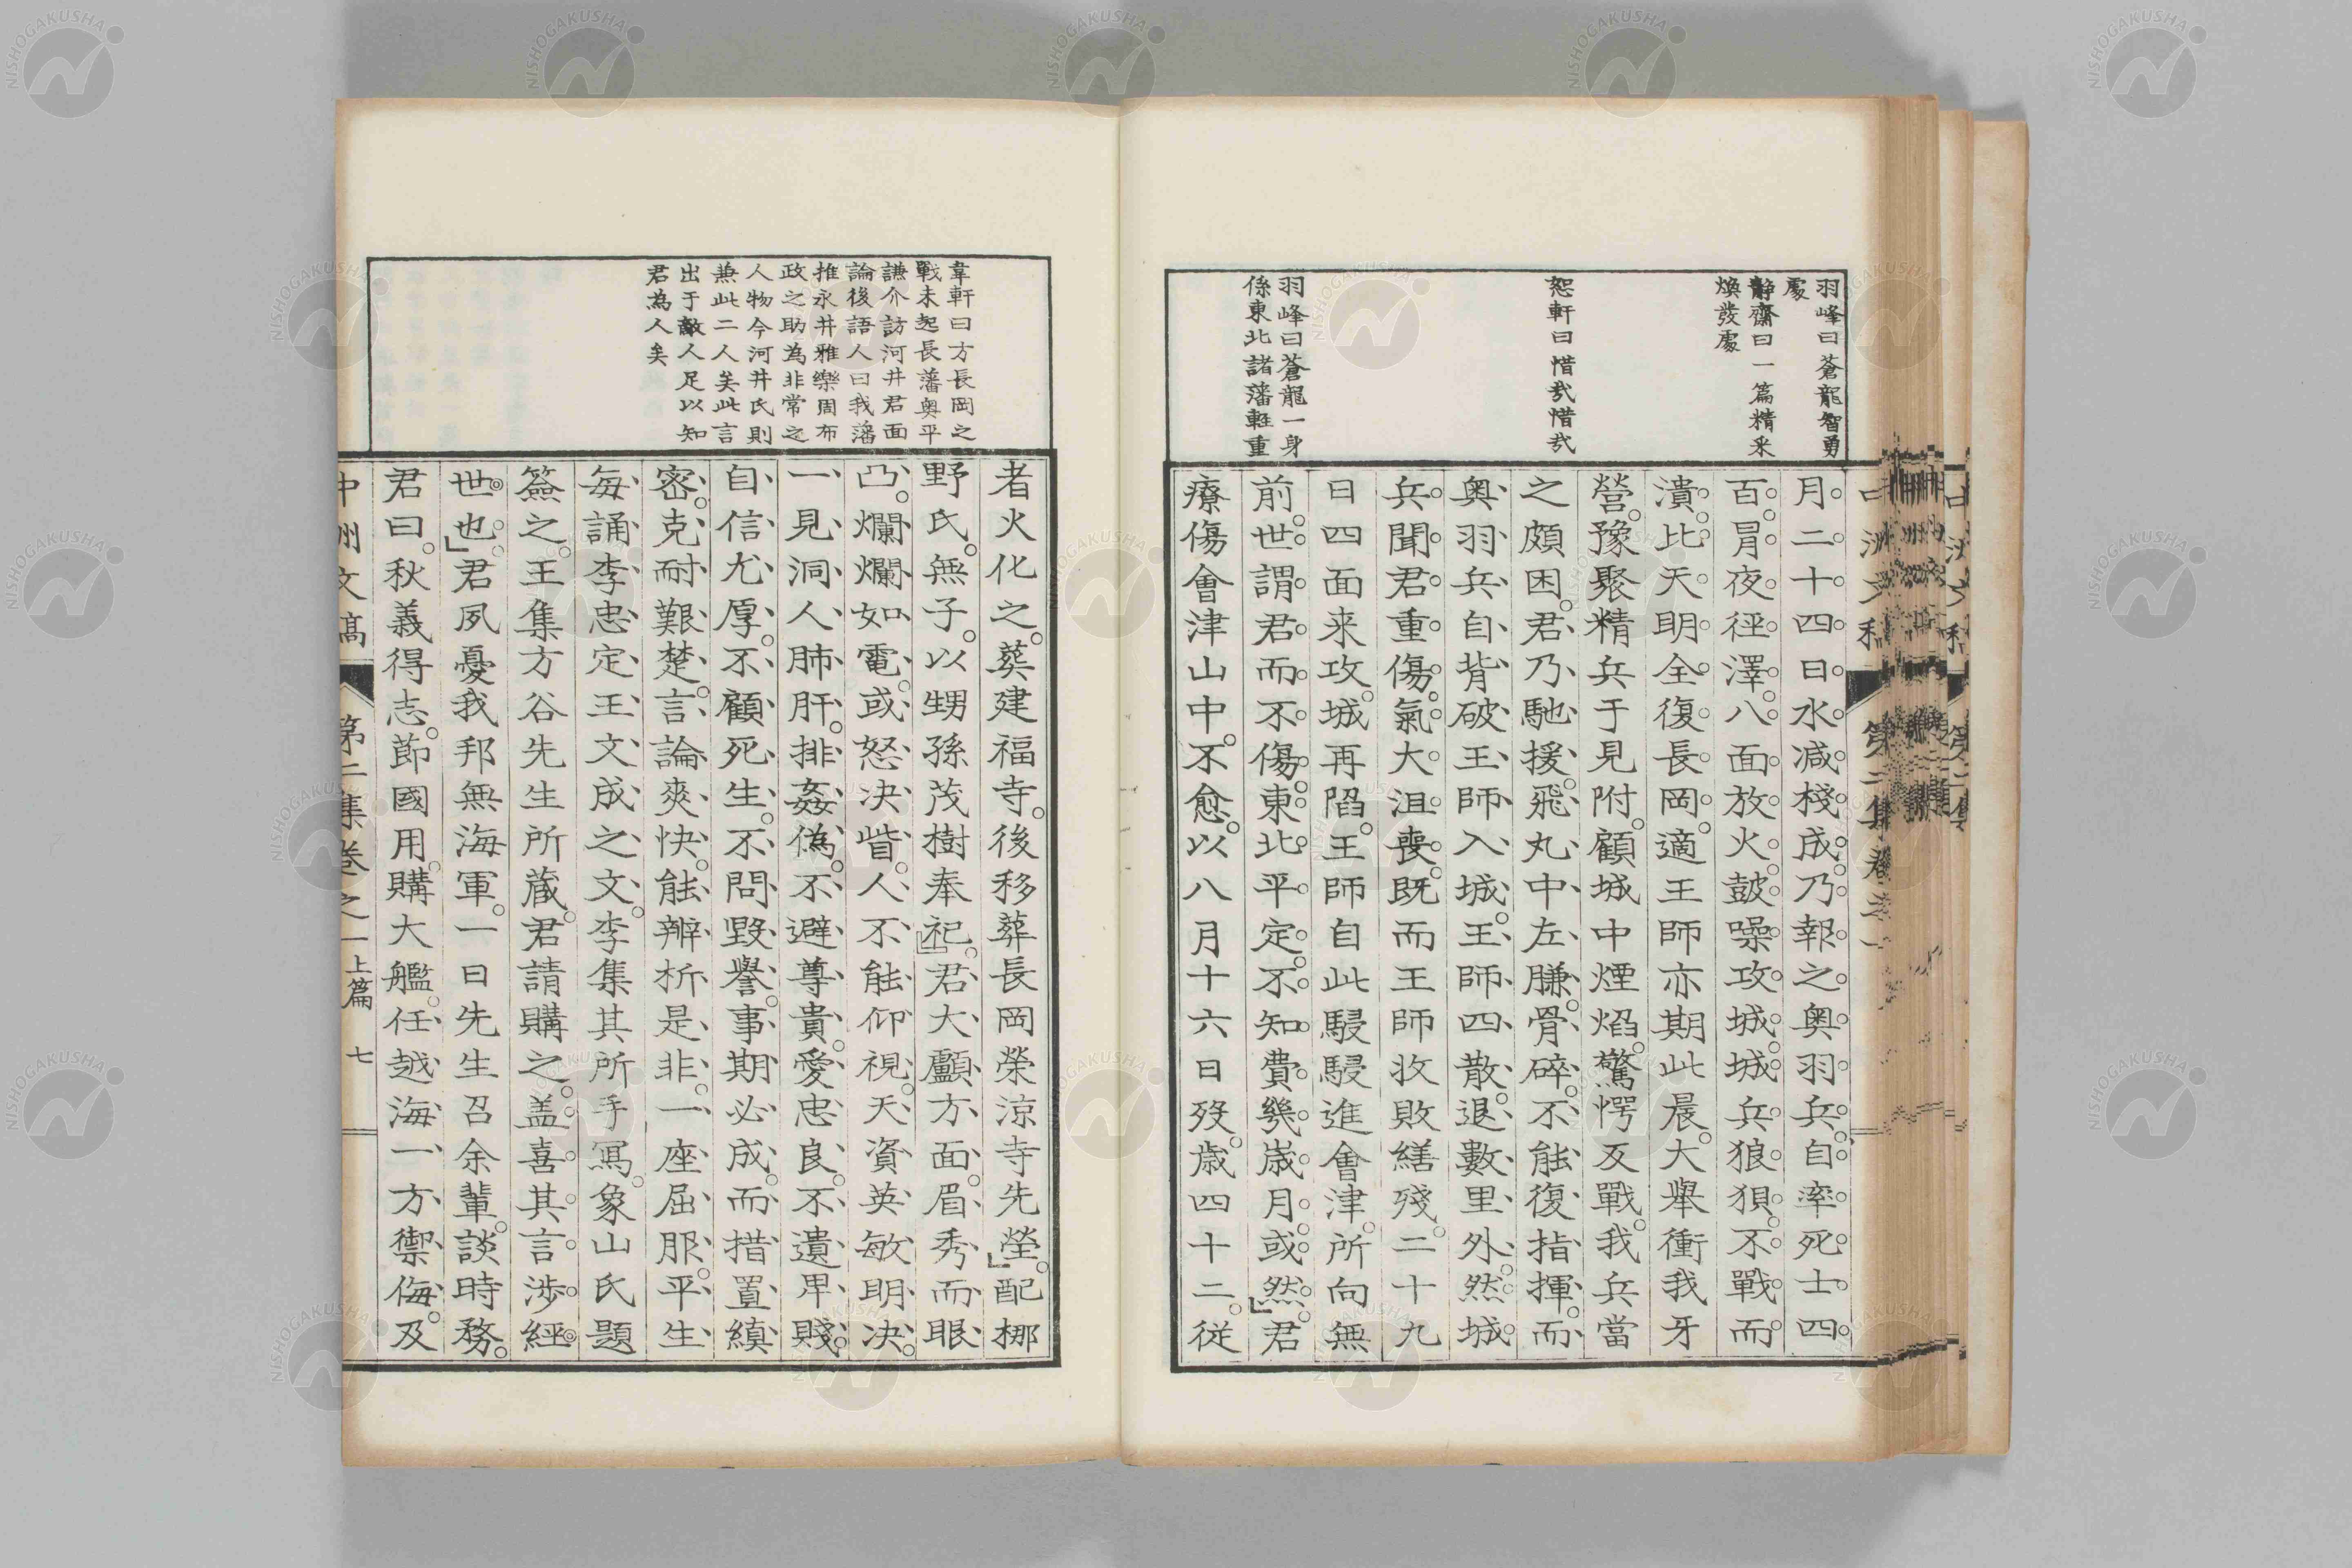 羽峰曰蒼龍智勇
處
靜齋曰一篇精采
煥發處
恕軒曰惜哉惜哉
羽峰曰蒼龍一身
係東北諸藩輕重
月二十四日水減棧成乃報之奧羽兵自率死士四
百冐夜徑澤八面放火鼓噪攻城城兵狼狽不戰而
潰比天明全復長岡適王師亦期此晨大舉衝我牙
營豫聚精兵于見附顧城中煙焰驚愕反戰我兵當
之頗困君乃馳援飛丸中左膁骨碎不能復指揮而
奧羽兵自背破王師入城王師四散退數里外然城
兵聞君重傷氣大沮喪既而王師收敗繕殘二十九
日四面来攻城再陷王師自此駸駸進會津所向無
前世謂君而不傷東北平定不知費幾歲月或然君
療傷會津山中不愈以八月十六日歿歲四十二從
韋軒曰方長岡之
戰未起長藩奧平
謙介訪河井君面
論後語人曰我藩
推永井雅樂周布
政之助為非常之
人物今河井氏則
兼此二人矣此言
出于敵人足以知
君為人矣
者火化之葬建福寺後移葬長岡榮涼寺先塋配梛
野氏無子以甥孫茂樹奉祀君大顱方面眉秀而眼
凸爛爛如電或怒決眥人不能仰視天資英敏明決
一見洞人肺肝排姦偽不避尊貴愛忠良不遺卑賤
自信尤厚不顧死生不問毀譽事期必成而措置縝
密克耐艱楚言論爽快能辨析是非一座屈服平生
每誦李忠定王文成之文李集其所手寫象山氏題
簽之王集方谷先生所藏君請購之盖喜其言涉經
世也君夙憂我邦無海軍一日先生召余輩談時務
君曰秋義得志節國用購大艦任越海一方禦侮及
中州文稿 第二集卷之一 上篇 七